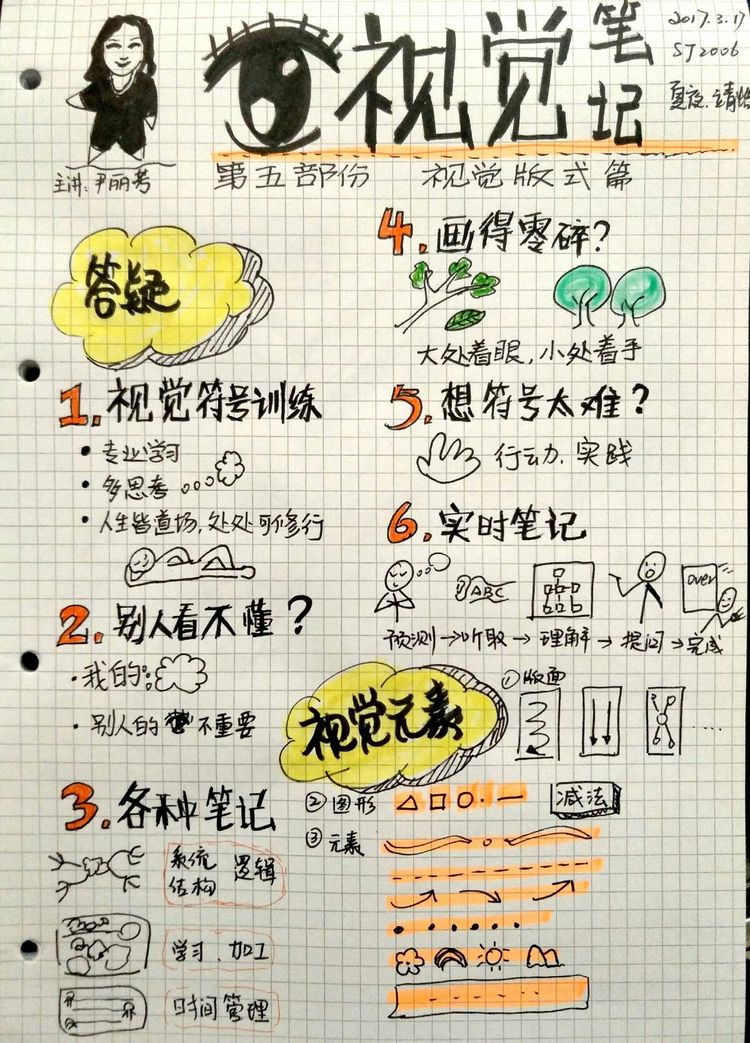 视觉笔记
2017.3.17
ST2006
夏夜.靖怡
主讲:尹丽芳
第五部份 视觉版式篇
答疑
1.视觉符号训练
• 专业学习
• 多思考
• 人生皆道场,处处可修行
2.别人看不懂?
• 我的:
• 别人的 不重要
3.各种笔记
系统 逻辑
结构
学习.加工
时间管理
4.画得零碎?
大处着眼,小处着手
5.想符号太难?
行动.实践
6.实时笔记
ABC
over
预测→听取→理解→提问→完成
视觉元素
①版面
②图形
减法
③元素